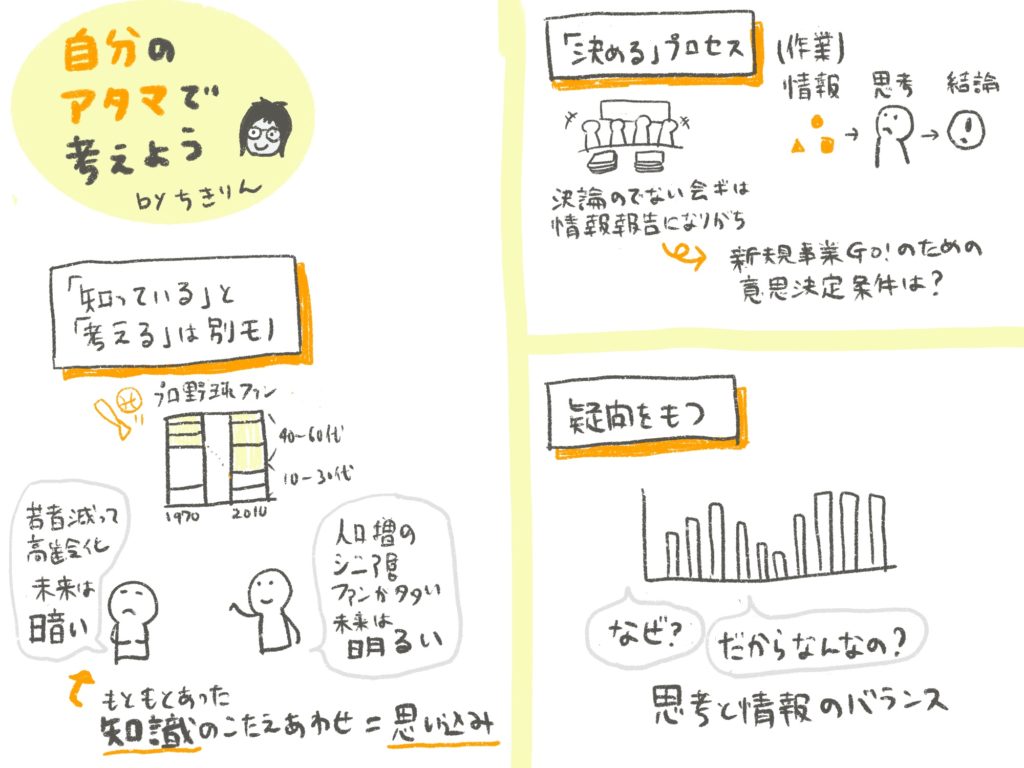 自分の
アタマで
考えよう
by ちきりん
「知っている」と
「考える」は別モノ
プロ野球ファン
40〜60代
10〜30代
1970
2010
若者減って
高齢化
未来は
暗い
人口増の
シニア層
ファンが多い
未来は
明るい
もともとあった
知識のこたえあわせ=思い込み
「決める」プロセス
(作業)
情報
思考
結論
決論のでない会ギは
情報報告になりがち
新規事業GO!のための
意思決定条件は?
疑問をもつ
なぜ?
だからなんなの?
思考と情報のバランス